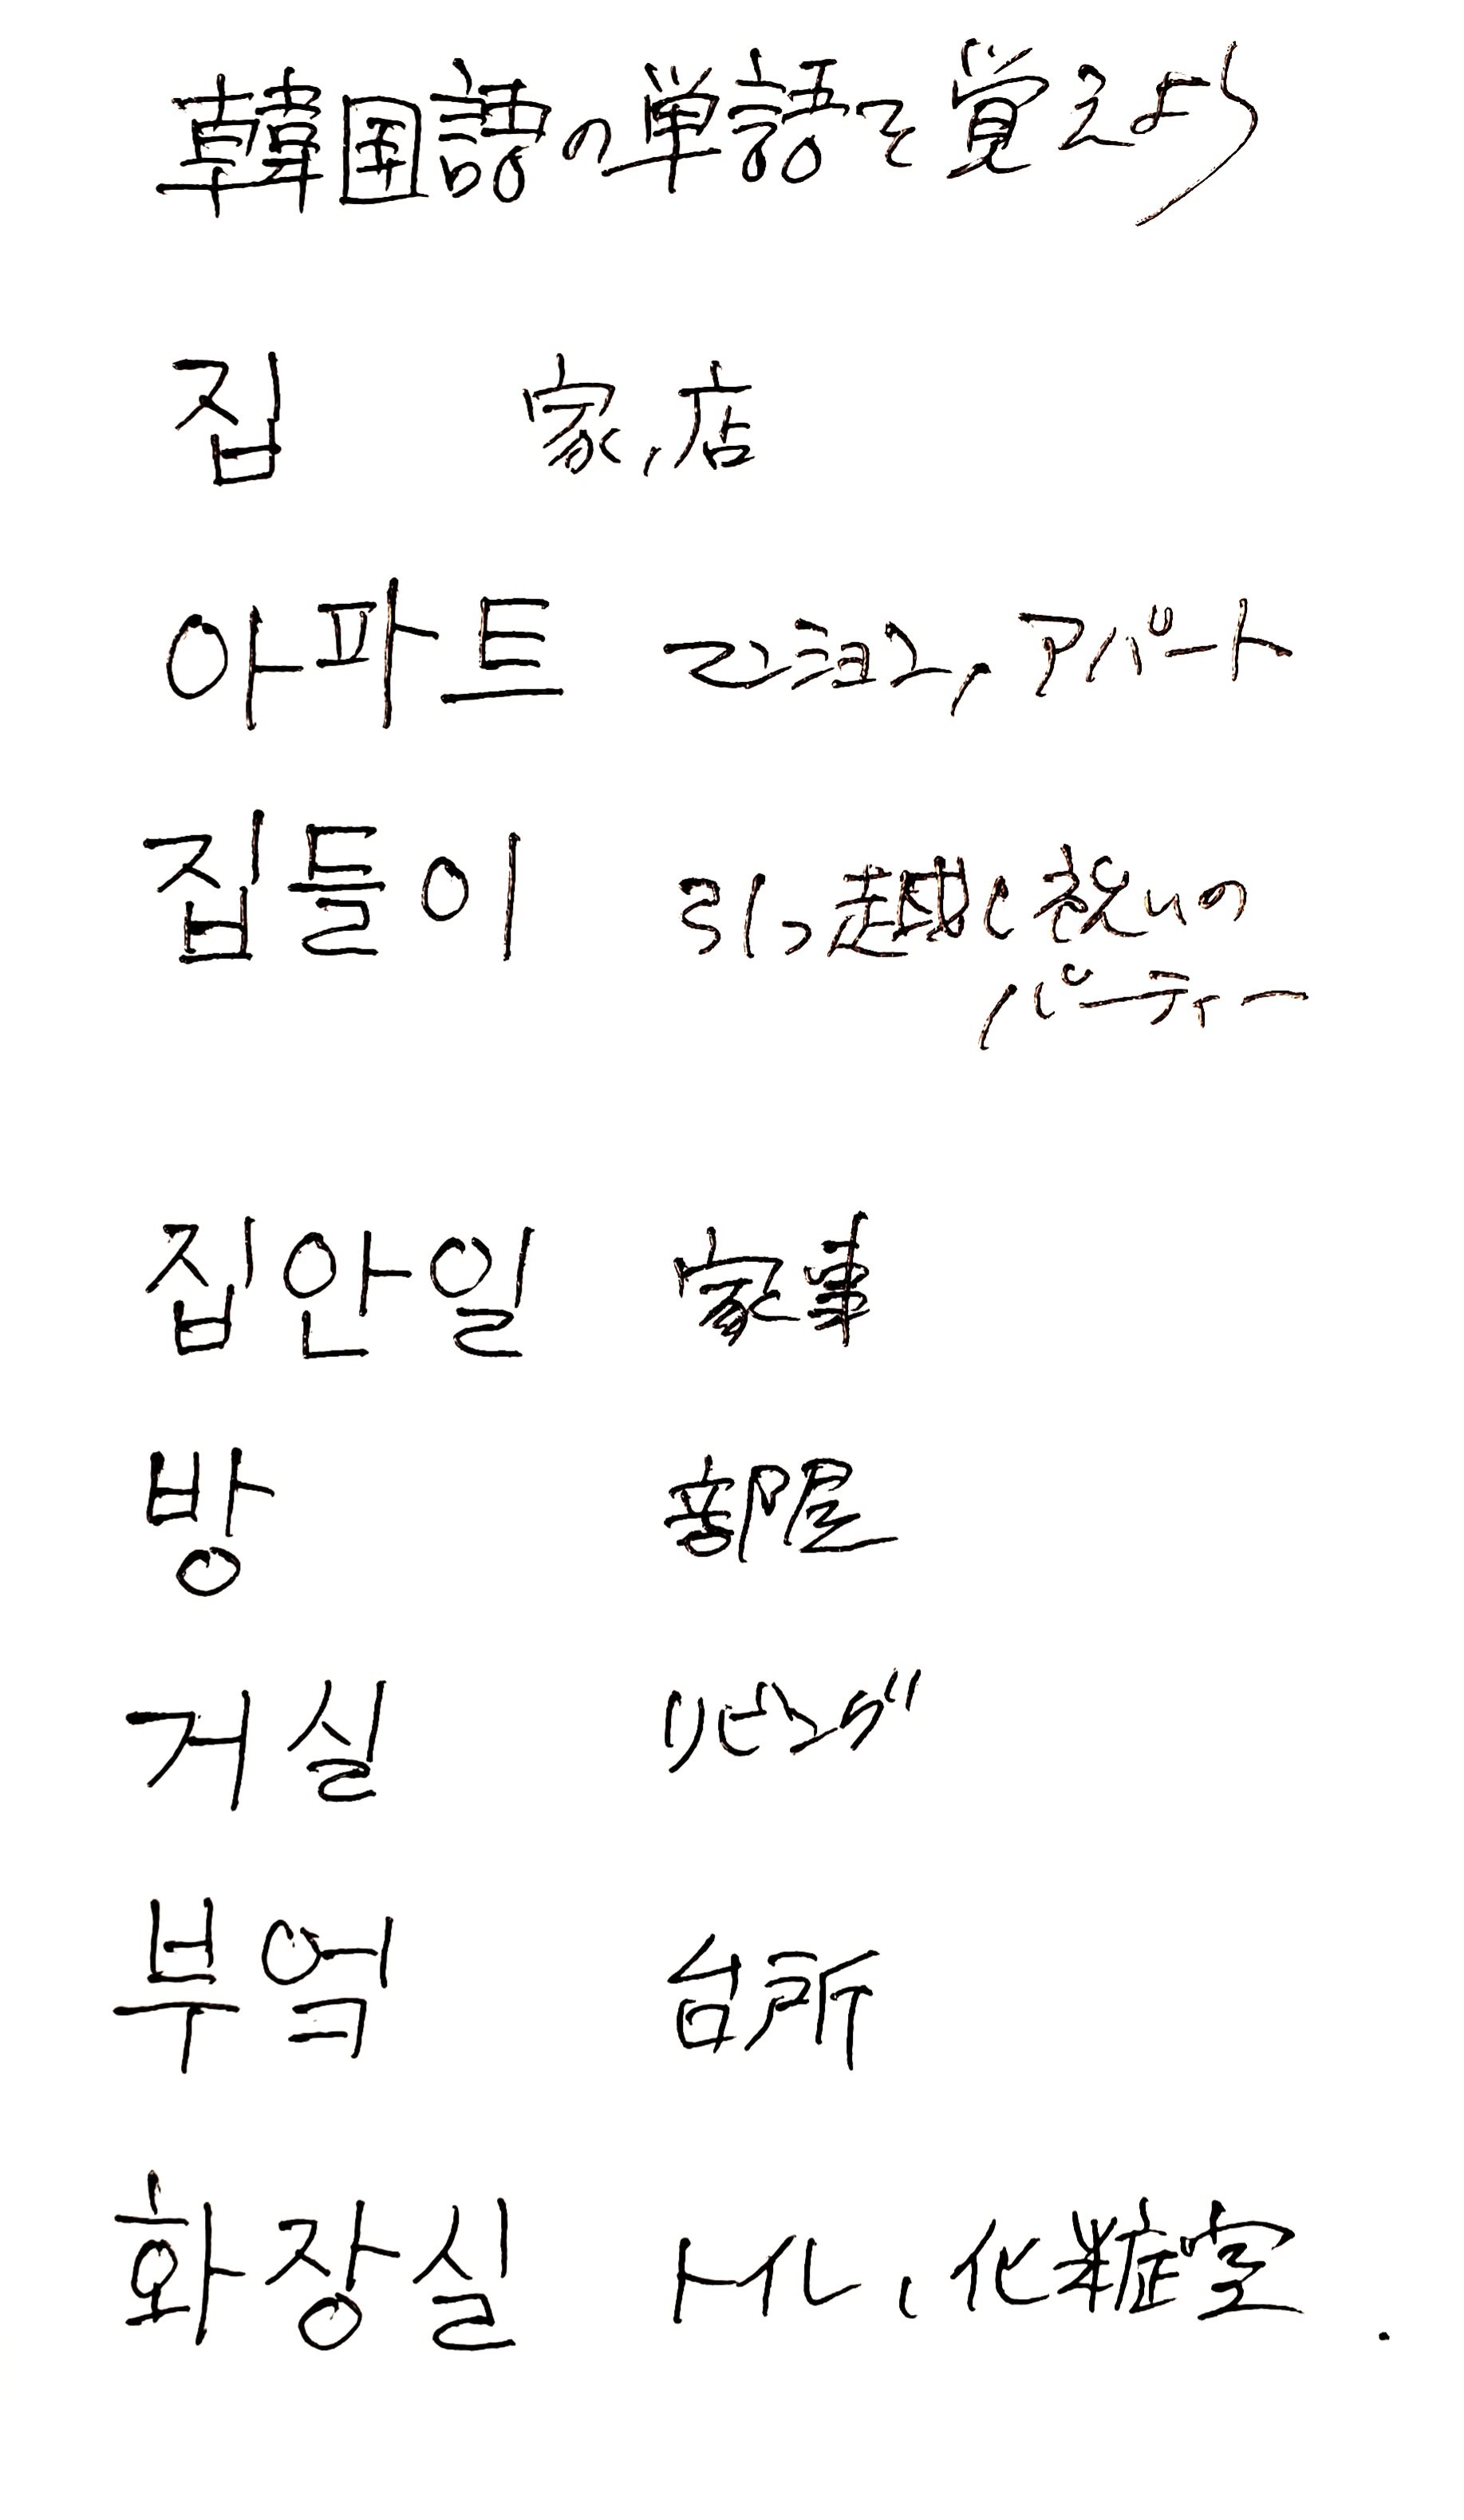 韓国語の単語を覚えよう
집 家,店
아파트 マンション,アパート
집들이 引っ越し祝いの
パーティー
집안일 家事
방 部屋
거실 リビング
부엌 台所
화장실 トイレ、化粧室